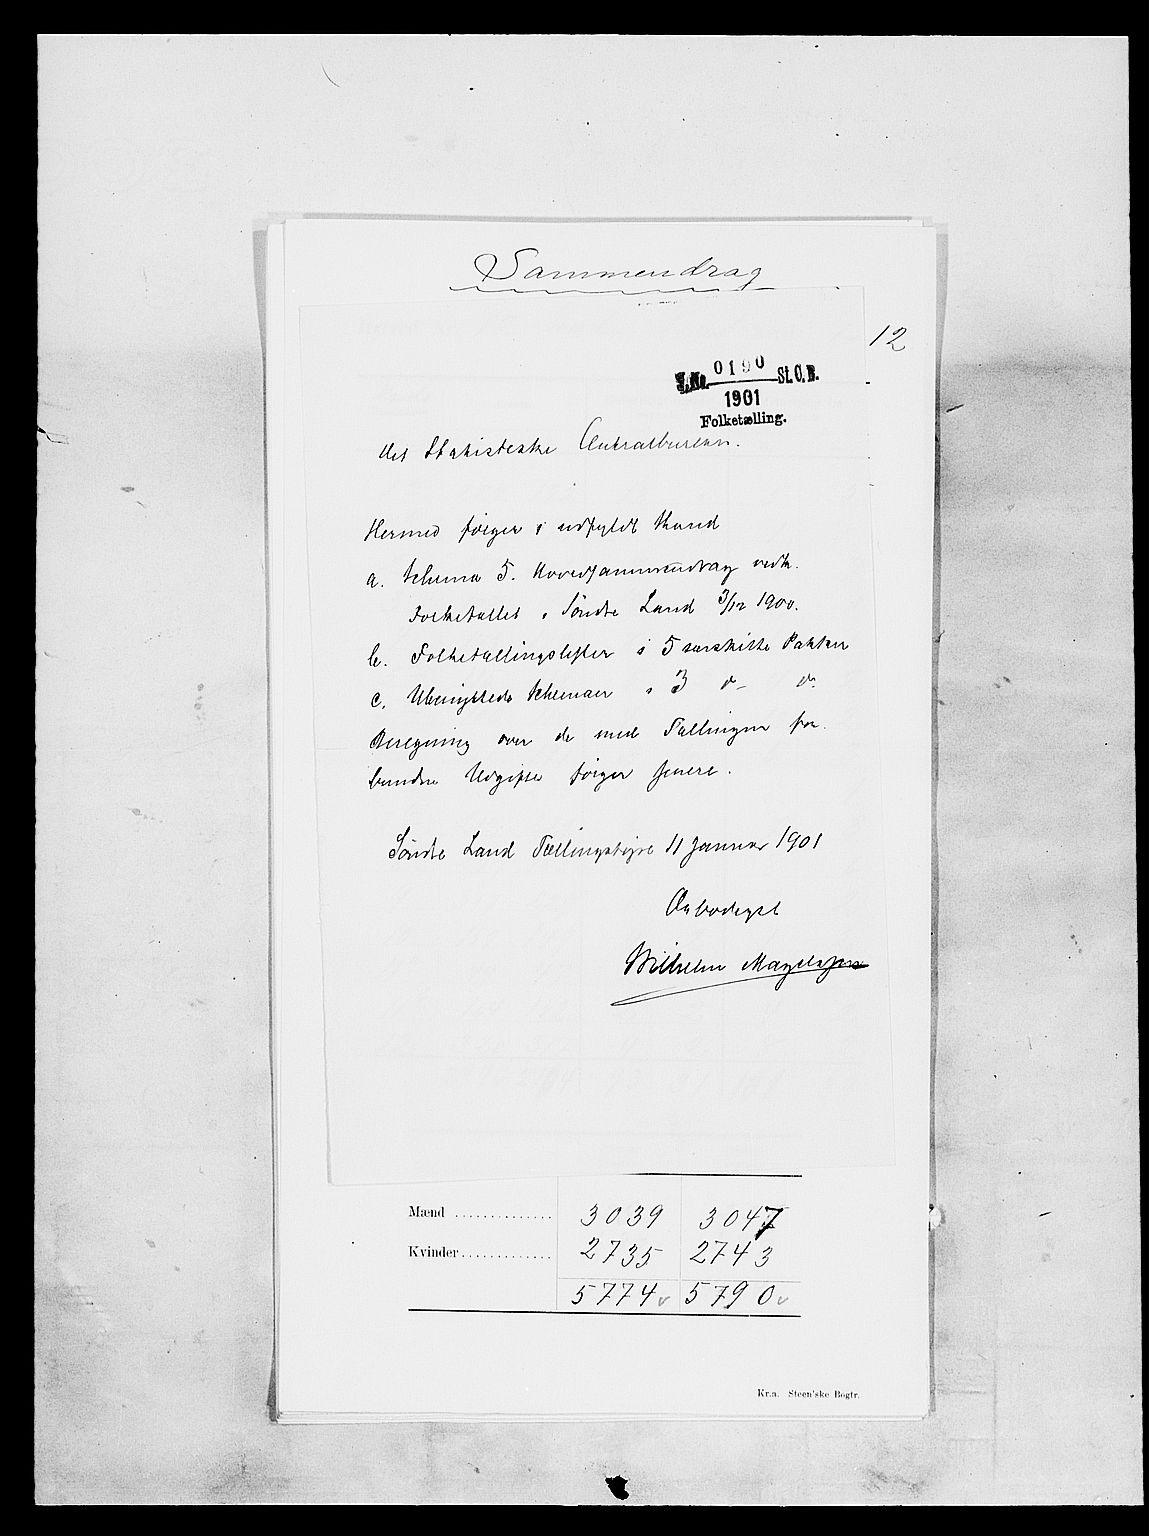 Sammendrag
12
J.No. 0190 St.C.B.
1901
Folketælling.
Det Statistiske Centralbureau.
Hermed følger i udfyldt Stand
a. Schema 5. Hovedsammendrag vedk.
Folketallet i Søndre Land 3/12 1900.
b. Folketællingslister i 5 særskilte Pakker
c. Ubenyttede Schemaer i 3 do do
Beregning over de med Tællingen for-
bundne Udgifter følger senere.
Søndre Land Tællingsstyre 11 Januar 1901
Ærbødigst
Wilhelm Magelssen
Mænd .............. 3039 3047
Kvinder............. 2735 2743
5774 v 5790 v
Kr.a. Steen'ske Bogtr.